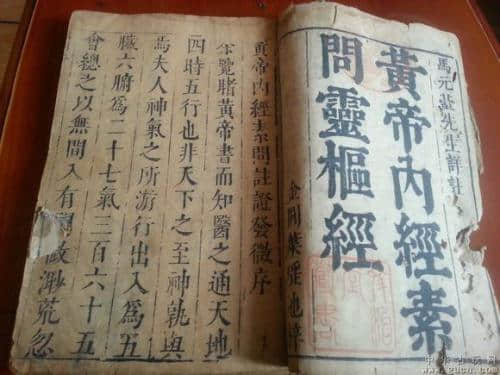 馬元臺先生詳註
黃帝內經素
問靈樞經
金閶葉
黃帝內經素問註證發微序
余覽睹黃帝書而知醫之通天地
四時五行也非天下之至神孰與
焉夫人神氣之所游行出入為五
臟六腑為二十七氣三百六十五
會總之以無間入有間故渺荒忽
中华古玩网
www.gucn.com